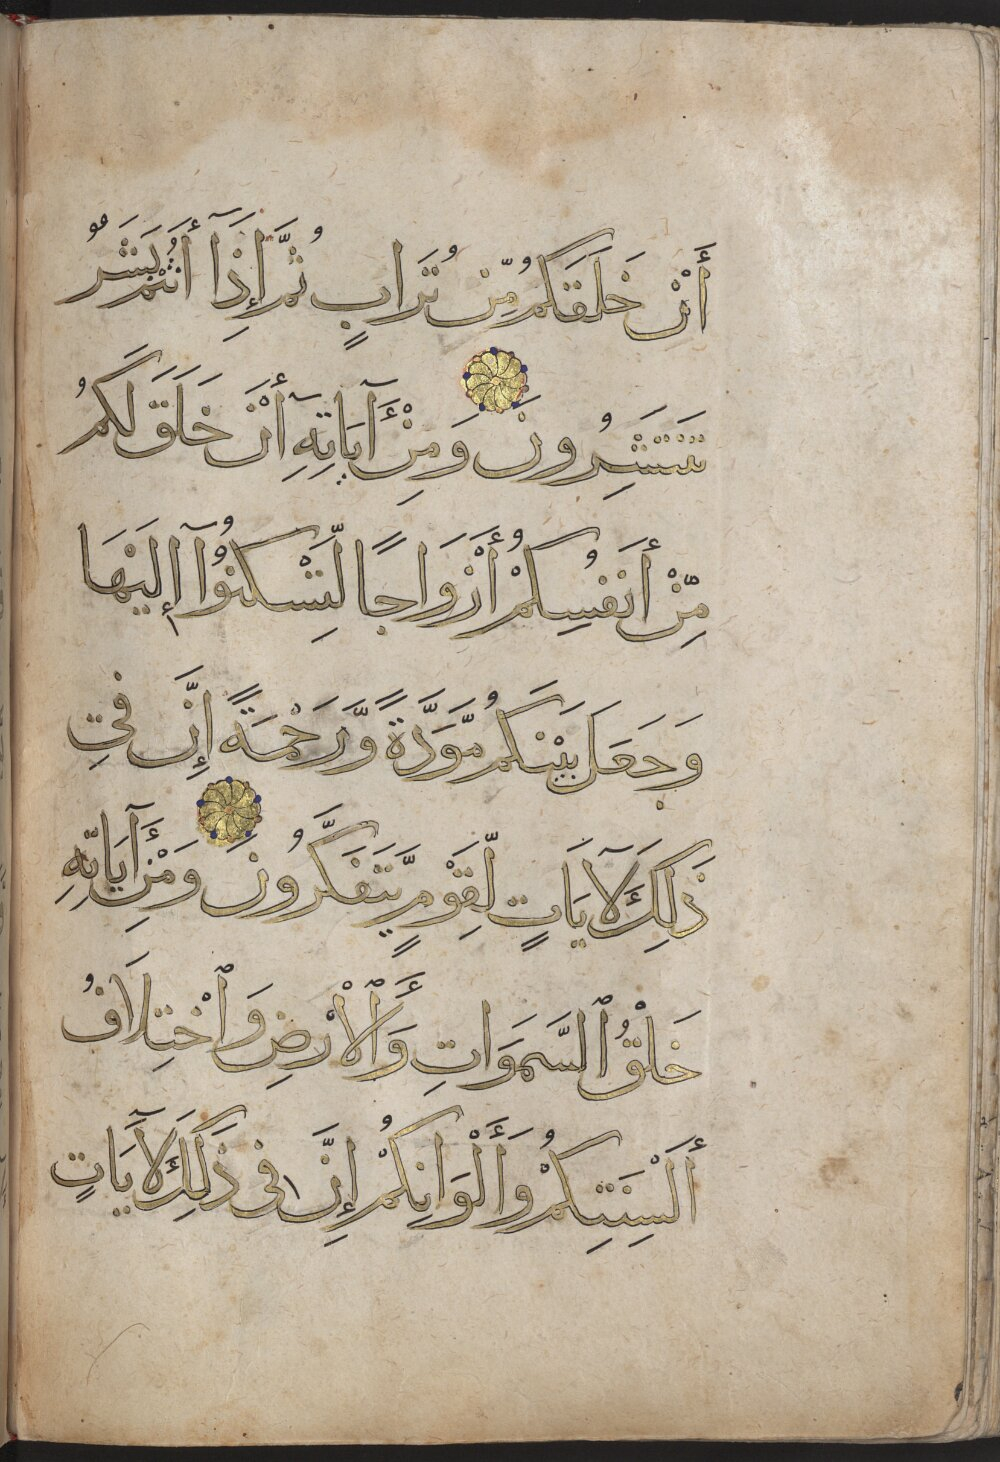 أَنْ خَلَقَكُم مِّن تُرَابٍ ثُمَّ إِذَآ أَنتُم بَشَرٌ
تَنتَشِرُونَ وَمِنْ ءَايَاتِهِٓ أَنْ خَلَقَ لَكُم
مِّنْ أَنفُسِكُمْ أَزْوَاجًا لِّتَسْكُنُوٓا إِلَيْهَا
وَجَعَلَ بَيْنَكُم مَّوَدَّةً وَّرَحْمَةً إِنَّ فِي
ذَلِكَ لَآيَاتٍ لِّقَوْمٍ يَّتَفَكَّرُونَ وَمِنْ ءَايَاتِهِ
خَلْقُ ٱلسَّمَوَاتِ وَٱلْأَرْضِ وَٱخْتِلَافُ
أَلْسِنَتِكُمْ وَأَلْوَانِكُمْ إِنَّ فِي ذَلِكَ لَآيَاتٍ